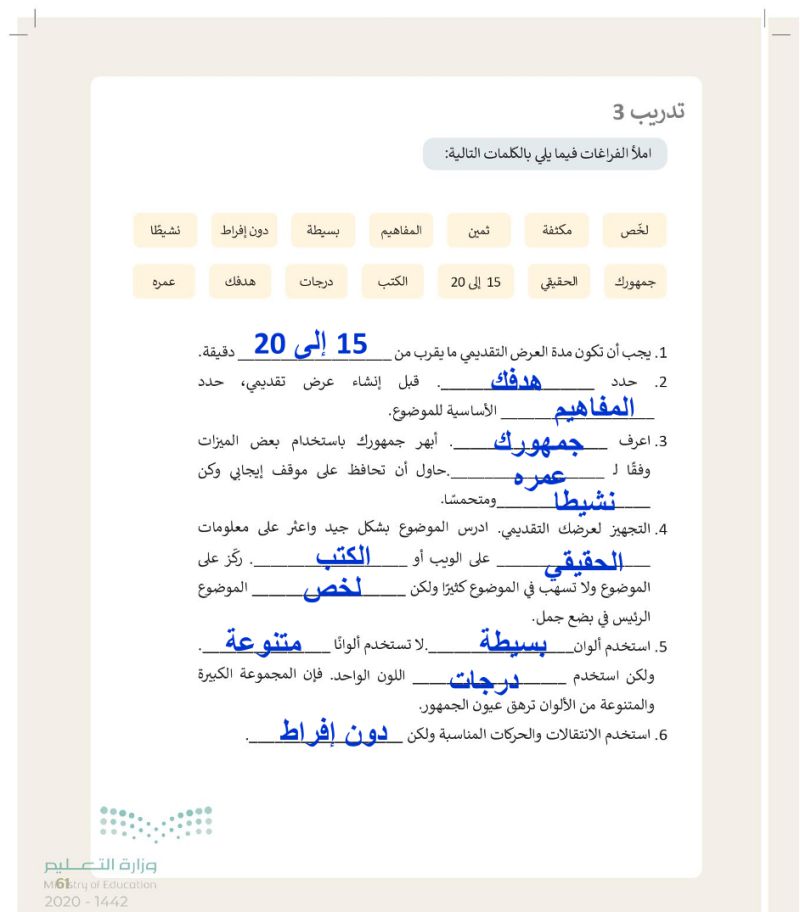 تدريب 3
املأ الفراغات فيما يلي بالكلمات التالية:
لخّص مكثفة ثمين المفاهيم بسيطة دون إفراط نشيطًا
جمهورك الحقيقي 15 إلى 20 الكتب درجات هدفك عمره
1. يجب أن تكون مدة العرض التقديمي ما يقرب من 15 إلى 20 دقيقة.
2. حدد هدفك. قبل إنشاء عرض تقديمي، حدد
المفاهيم الأساسية للموضوع.
3. اعرف جمهورك. أبهر جمهورك باستخدام بعض الميزات
وفقًا لـ عمره.حاول أن تحافظ على موقف إيجابي وكن
نشيطا ومتحمسًا.
4. التجهيز لعرضك التقديمي. ادرس الموضوع بشكل جيد واعثر على معلومات
الحقيقي على الويب أو الكتب. ركّز على
الموضوع ولا تسهب في الموضوع كثيرًا ولكن لخص الموضوع
الرئيس في بضع جمل.
5. استخدم ألوان بسيطة.لا تستخدم ألوانًا متنوعة.
ولكن استخدم درجات اللون الواحد. فإن المجموعة الكبيرة
والمتنوعة من الألوان ترهق عيون الجمهور.
6. استخدم الانتقالات والحركات المناسبة ولكن دون إفراط.
وزارة التعليم
Ministry of Education
61
2020 - 1442